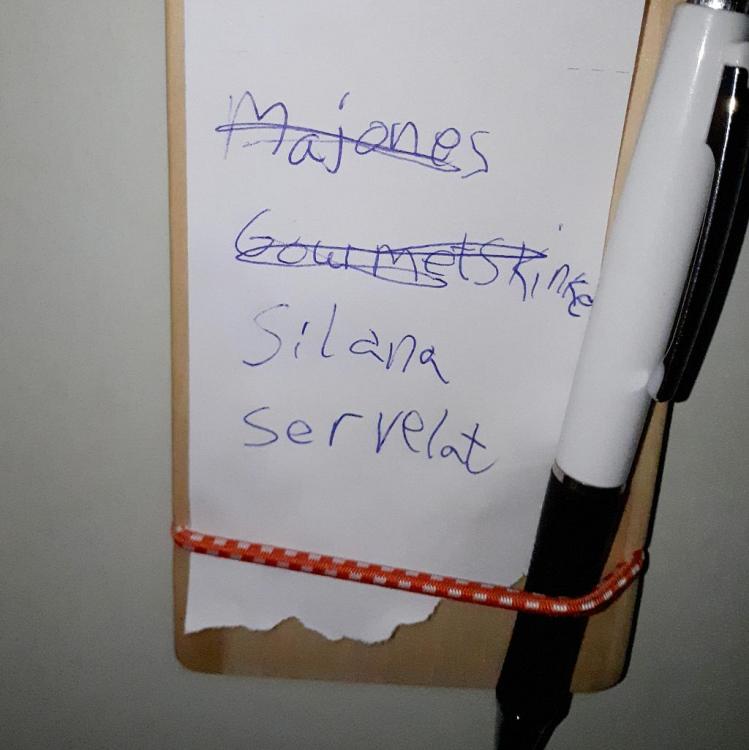 Majones
Gourmetskinke
Silana
servelat